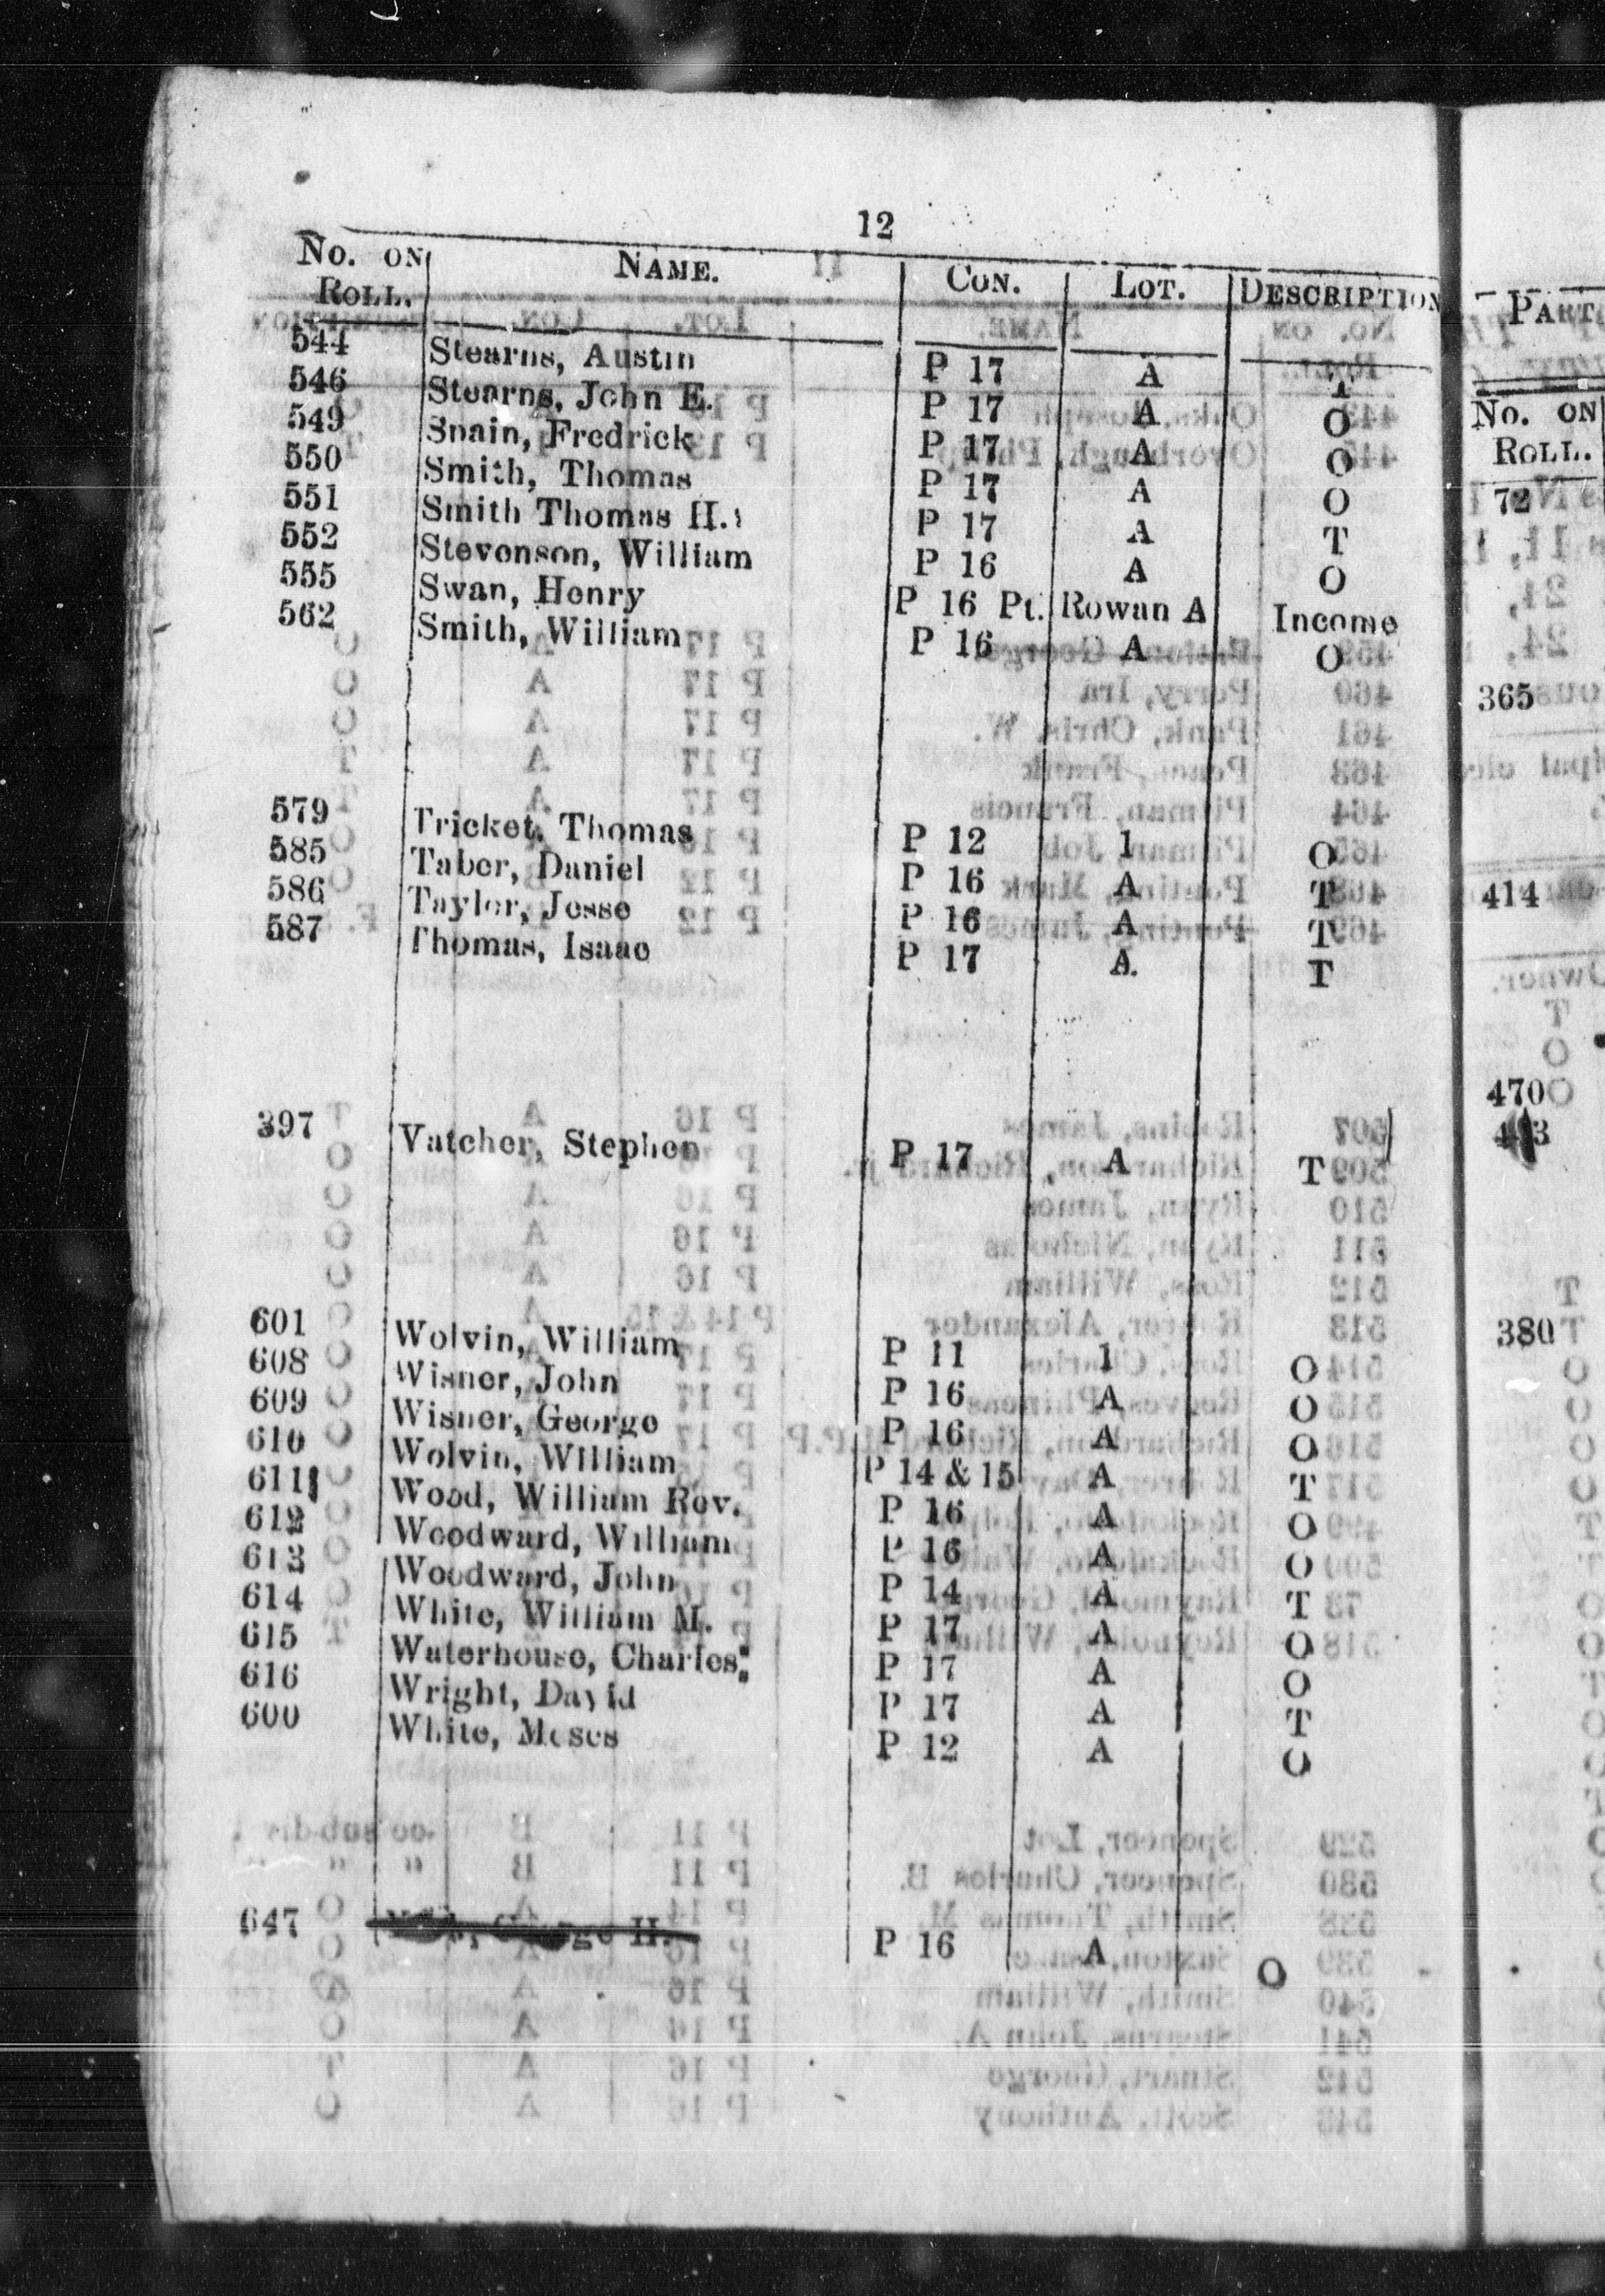 12
No. ON ROLL. NAME. CON. LOT. DESCRIPTION
544 Stearns, Austin P 17 A T
546 Stearns, John E. P 17 A O
549 Snain, Fredrick P 17 A O
550 Smith, Thomas P 17 A O
551 Smith Thomas H. P 17 A T
552 Stevenson, William P 16 A O
555 Swan, Henry P 16 Pt. Rowan A Income
562 Smith, William P 16 A O
579 Tricket, Thomas P 12 1 O
585 Taber, Daniel P 16 A T
586 Taylor, Jesse P 16 A T
587 Thomas, Isaac P 17 A. T
397 Vatcher, Stephen P 17 A T
601 Wolvin, William P 11 1 O
608 Wisner, John P 16 A O
609 Wisner, George P 16 A O
610 Wolvin, William P 14 & 15 A T
611 Wood, William Rev. P 16 A O
612 Woodward, William P 16 A O
613 Woodward, John P 14 A T
614 White, William M. P 17 A O
615 Waterhouse, Charles P 17 A O
616 Wright, David P 17 A T
600 White, Moses P 12 A O
647 H. P 16 A O
PART
No. ON
ROLL.
72
365
414
470
380